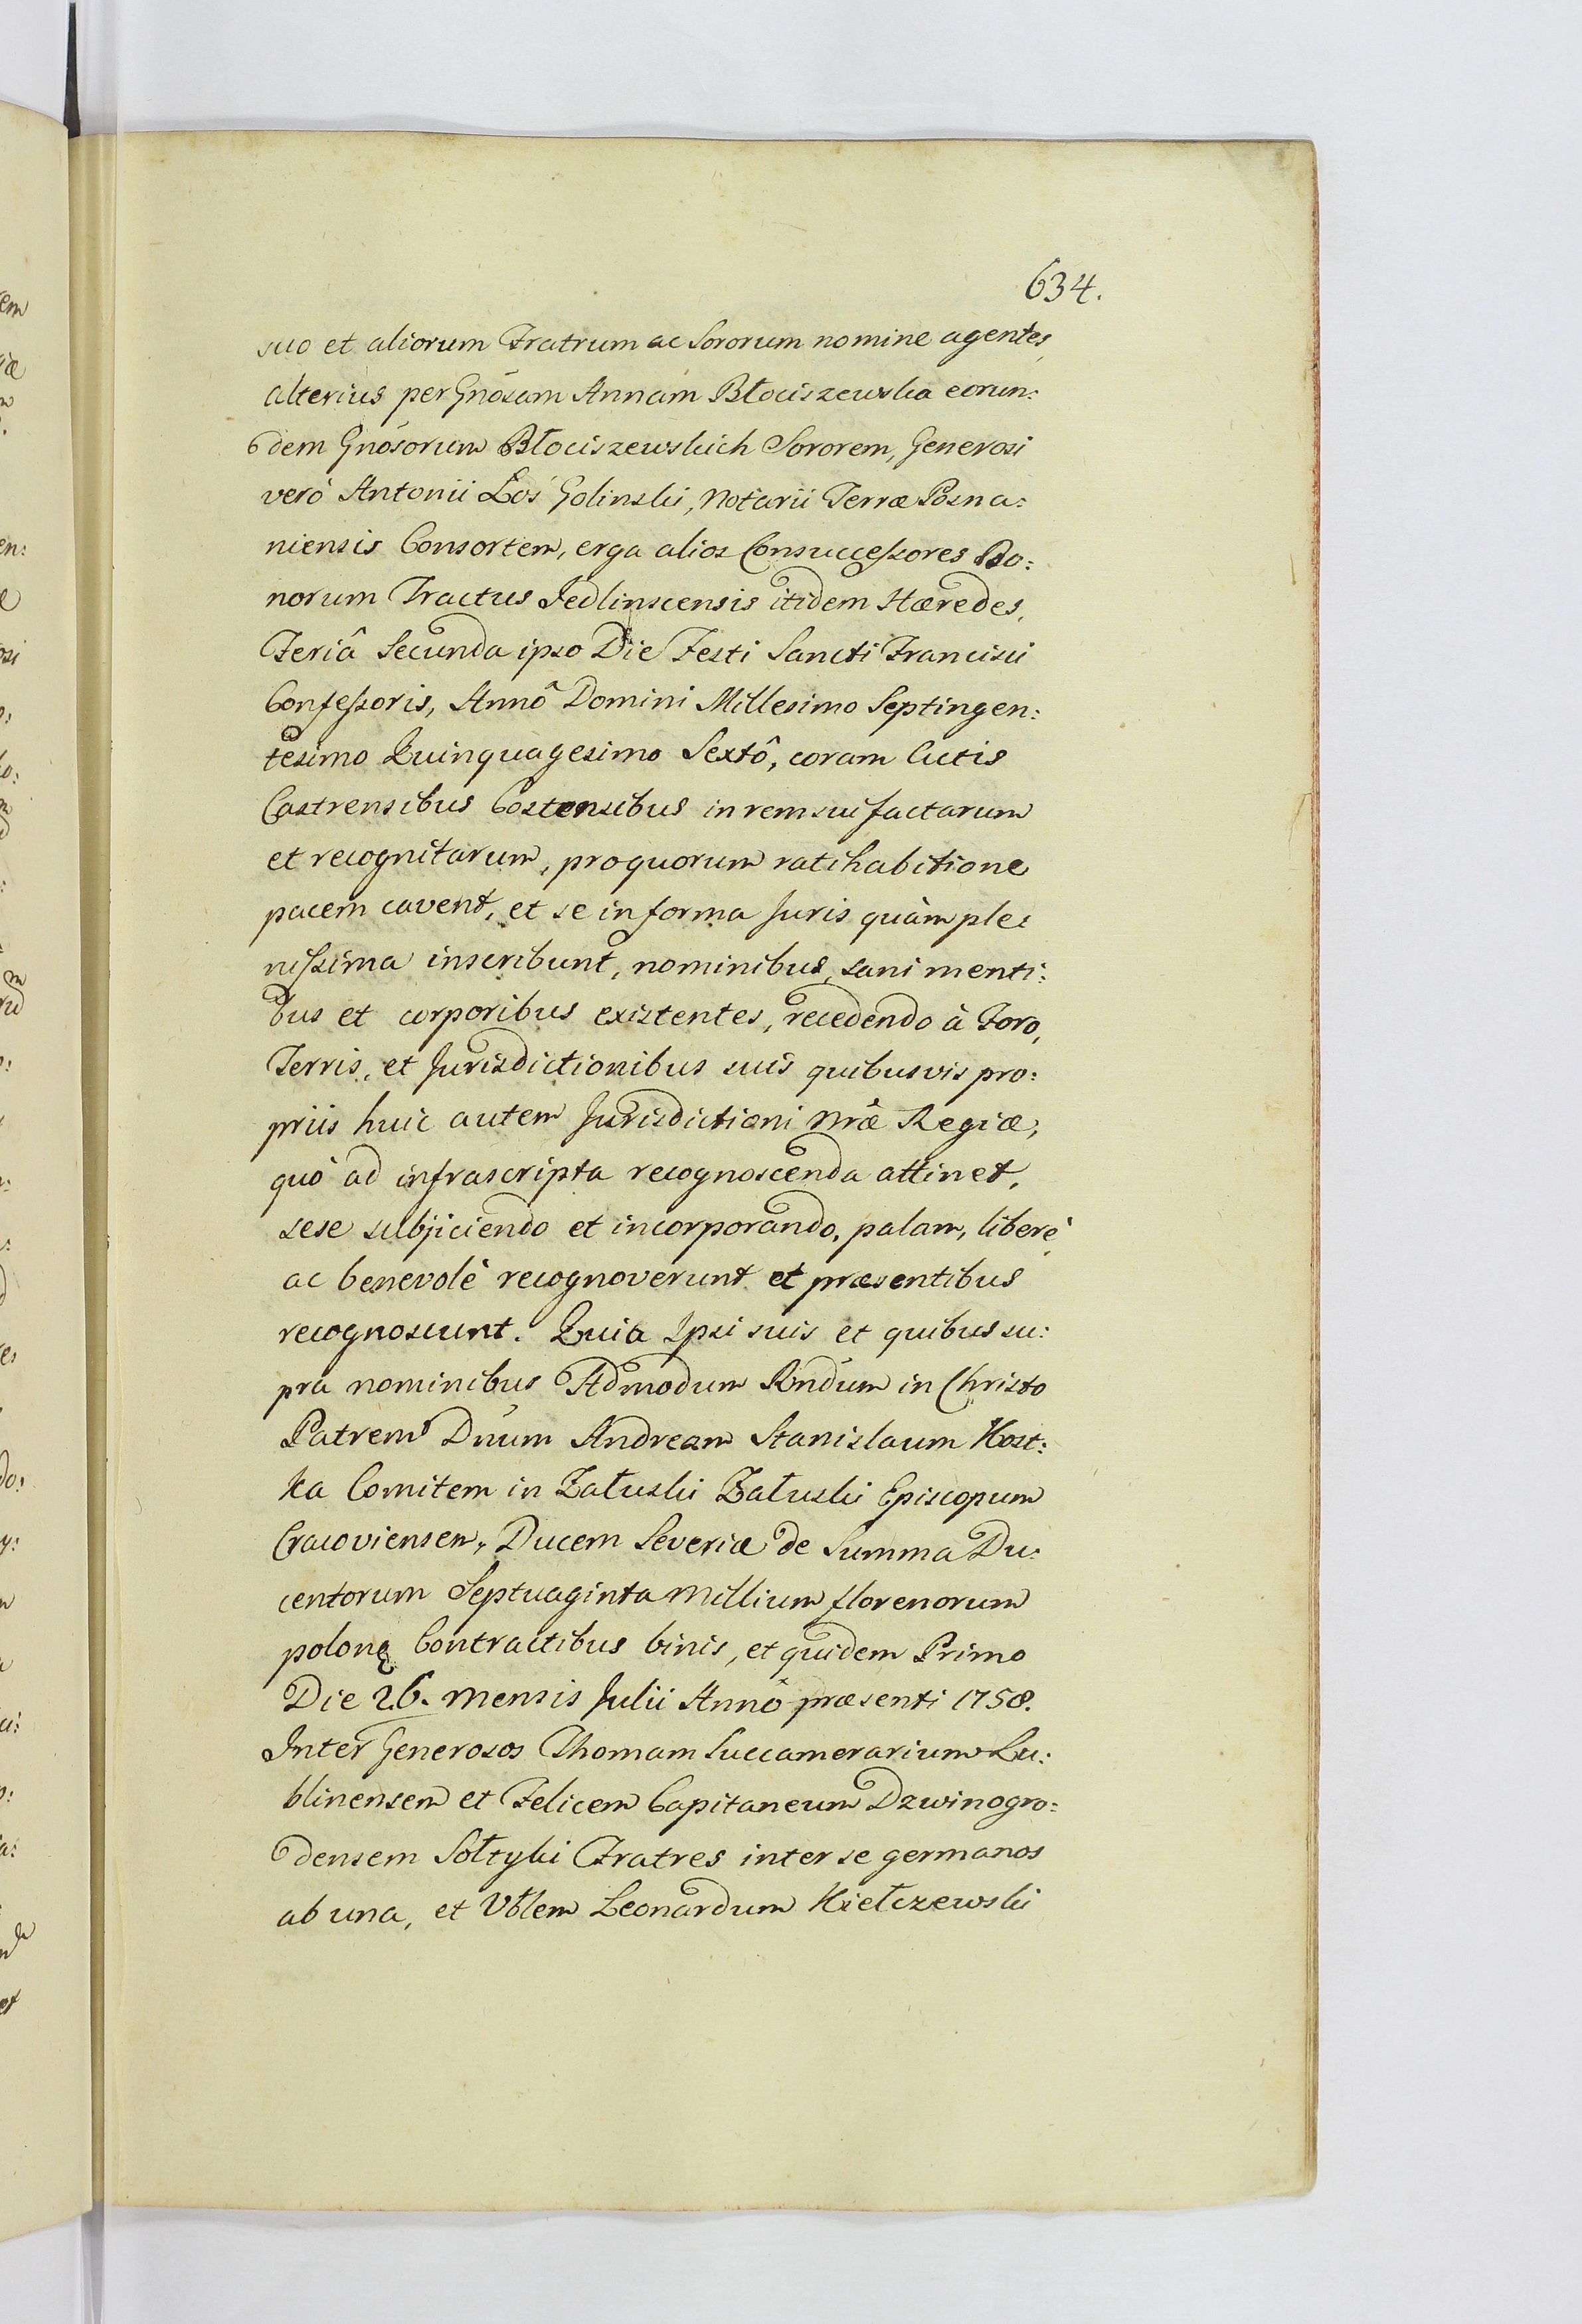 634.
suo et aliorum Fratrum ac Sororum nomine agentes,
alterius per Gnosam Annam Błociszewska eorun:
dem Gnosorum Błociszewskich Sororem, Generosi
verò Antonii Łoś Golinski, Notarii Terræ Posna:
niensis Consortem, erga alios Consuccessores Bo:
norum Tractus Jedlinscensis itidem Hæredes,
Feriâ Secunda ipso Die Festi Sancti Francisci
Confessoris, Annô Domini Millesimo Septingen:
tesimo Quinquagesimo Sextô, coram Actis
Castrensibus Costensibus in rem sui factarum
et recognitarum, pro quorum ratihabitione
pacem cavent, et se in forma Juris quàm ple:
nissima inscribunt, nominibus, sani menti:
bus et corporibus existentes, recedendo à Foro,
Terris, et Jurisdictionibus suis quibusvis pro:
priis huic autem Jurisdictioni Nræ Regiæ,
quò ad infrascripta recognoscenda attinet,
sese subjiciendo et incorporando, palam, liberè,
ac benevolè recognoverunt et præsentibus
recognoscunt. Quia Ipsi suis et quibus su:
pra nominibus Admodum Rndum in Christo
Patrem Dnum Andream Stanislaum Kost:
ka Comitem in Załuski Załuski Episcopum
Cracoviensem, Ducem Severiæ de Summa Du:
centorum Septuaginta Millium florenorum
polonę Contractibus binis, et quidem Primo
Die 26. Mensis Julii Annô præsenti 1758.
Inter Generosos Thomam Succamerarium Lu:
blinensem et Felicem Capitaneum Dzwinogro:
densem Sołtyki Fratres inter se germanos
ab una, et Vblem Leonardum Kiełczewski